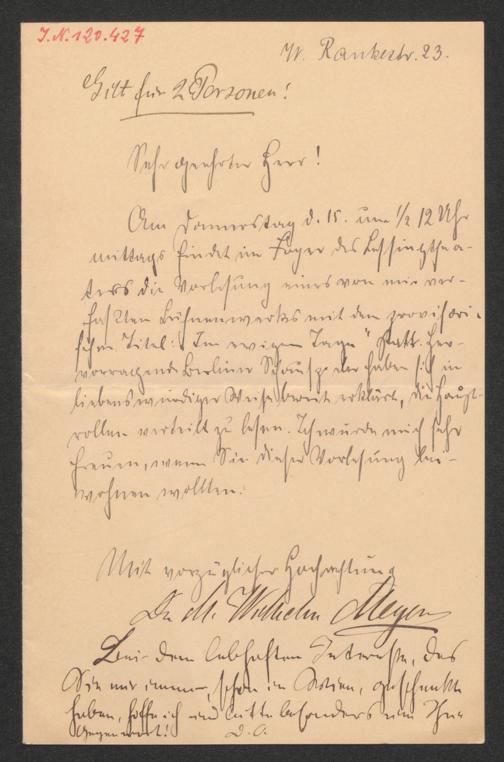 J.N. 120.427
W. Rankestr. 23.
Gilt für 2 Personen!
Sehr geehrter Herr!
Am Donnerstag d. 15. um ½ 12 Uhr
mittags findet im Foyer des Lessingthea-
ters die Vorlesung eines von mir ver-
faßten Bühnenwerks mit dem provisori-
schen Titel: „Im ewigen Tage“ statt. Her-
vorragende Berliner Schauspieler haben sich in
liebenswürdiger Weise bereit erklärt, die Haupt-
rollen verteilt zu lesen. Ich würde mich sehr
freuen, wenn Sie dieser Vorlesung bei-
wohnen wollten.
Mit vorzüglicher Hochachtung
Dr. M. Wilhelm Meyer
Bei dem lebhaften Interesse, das
Sie mir immer, schon in Wien, geschenkt
haben, hoffe ich und bitte besonders um Ihre
Gegenwart! D. O.